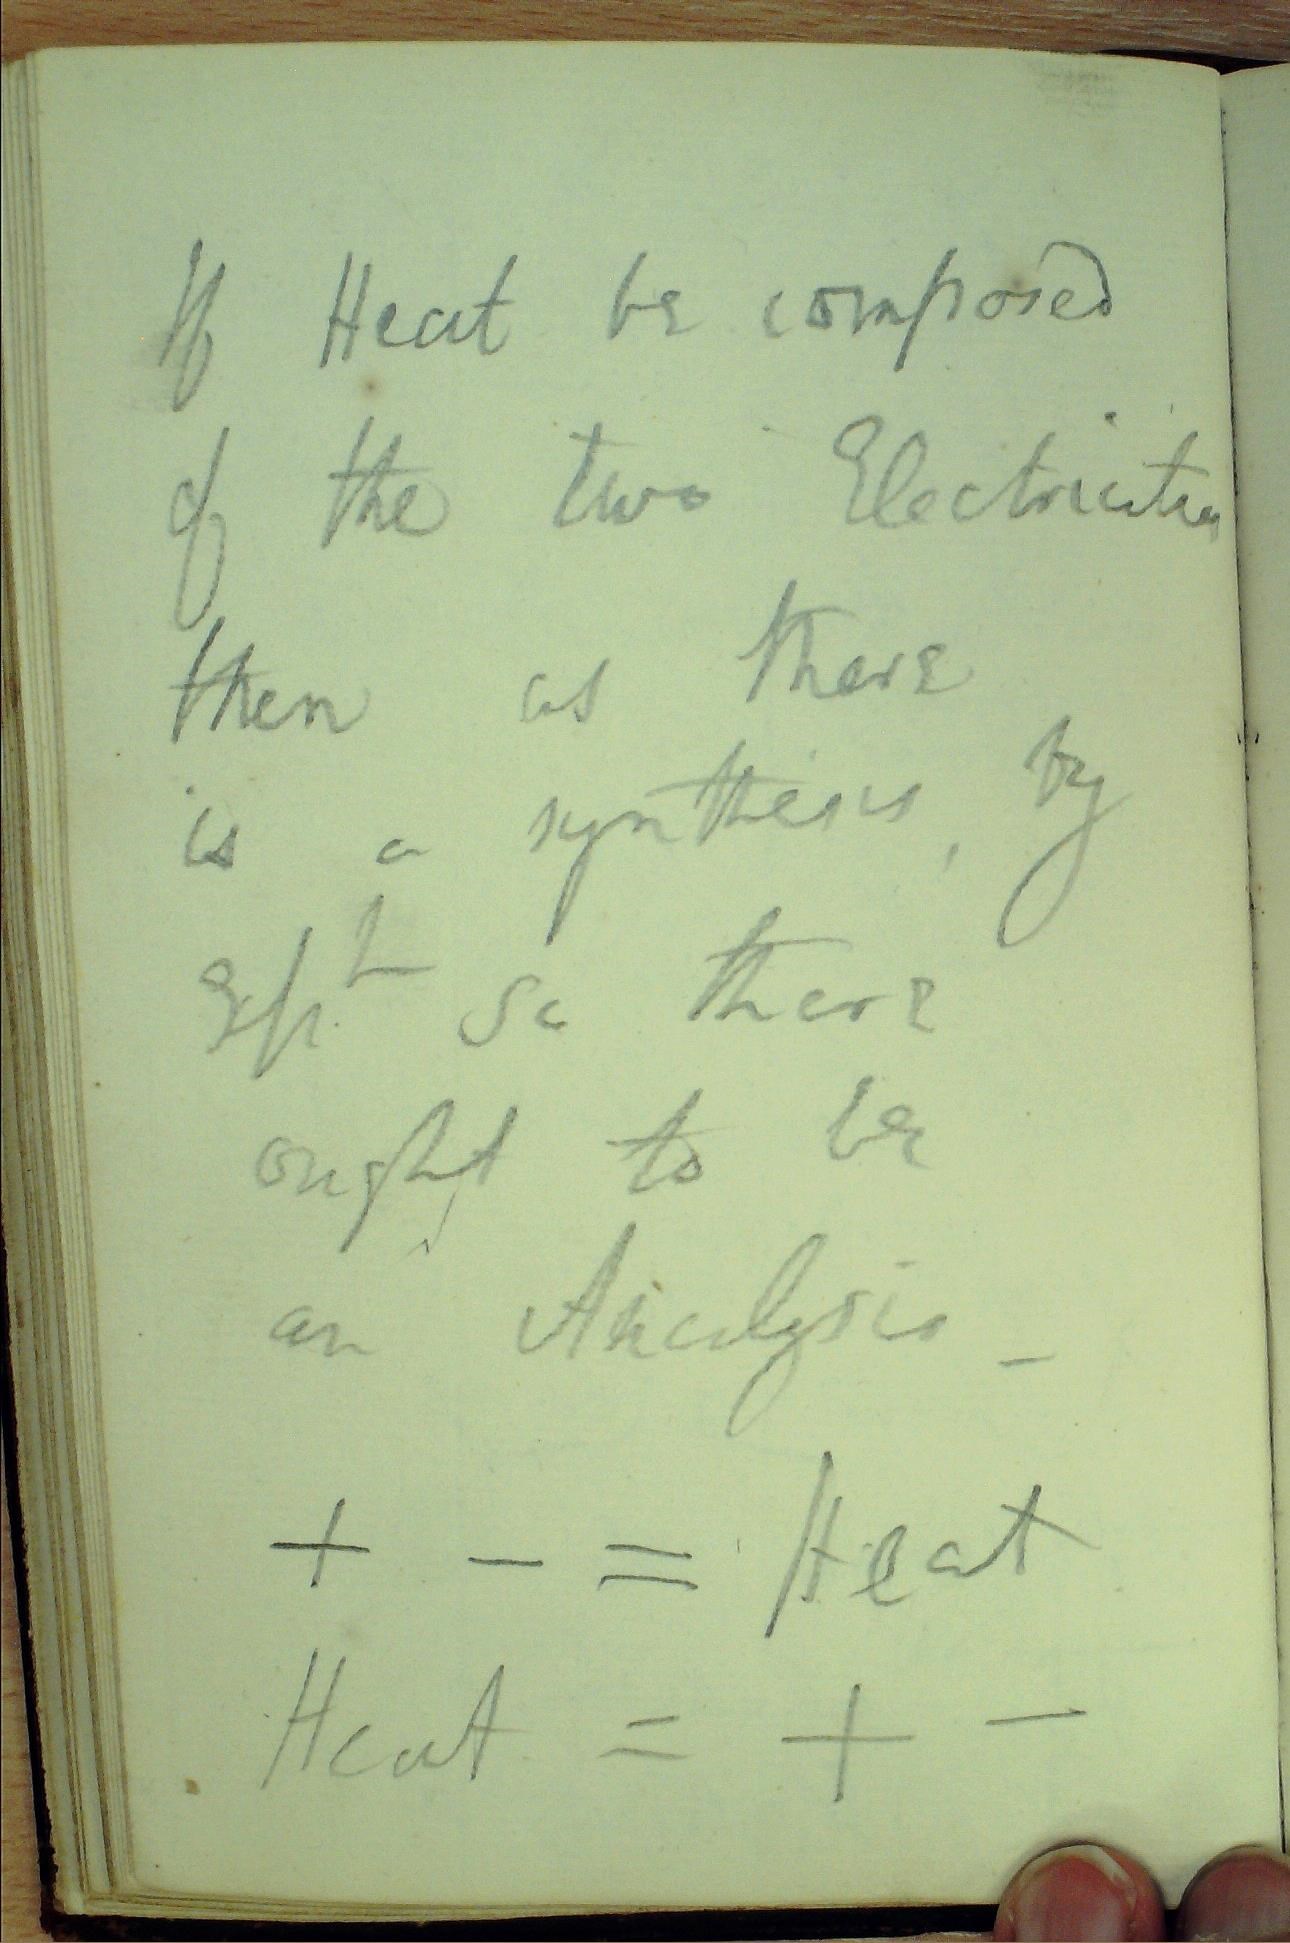 If Heat be composed
of the two Electricities
then as there
is a synthesis, by
Expt so there
ought to be
an Analysis _
+ - = Heat
Heat = + -